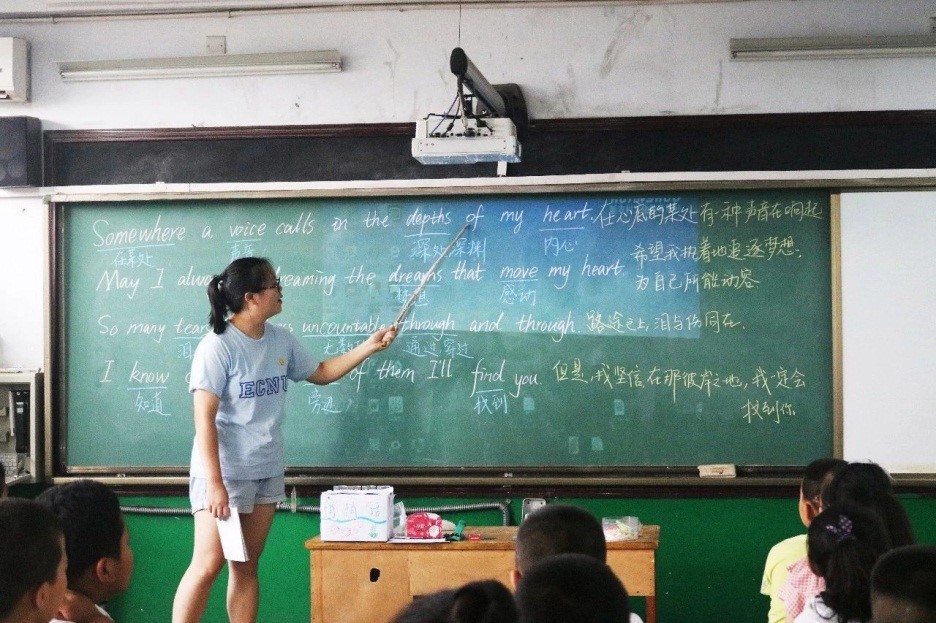 Somewhere a voice calls in the depths of my heart. 在心底的某处有一种声音在响起
在某处 声音 深处深渊 内心
May I always dreaming the dreams that move my heart. 希望我执着地追逐梦想;
感动 为自己所能动容
So many tears uncountable through and through 路途之上,泪与伤同在.
泪 无数 通过穿过
I know of them I'll find you. 但是,我坚信在那彼岸之地,我定会
知道 旁边 找到 找到你
ECNU